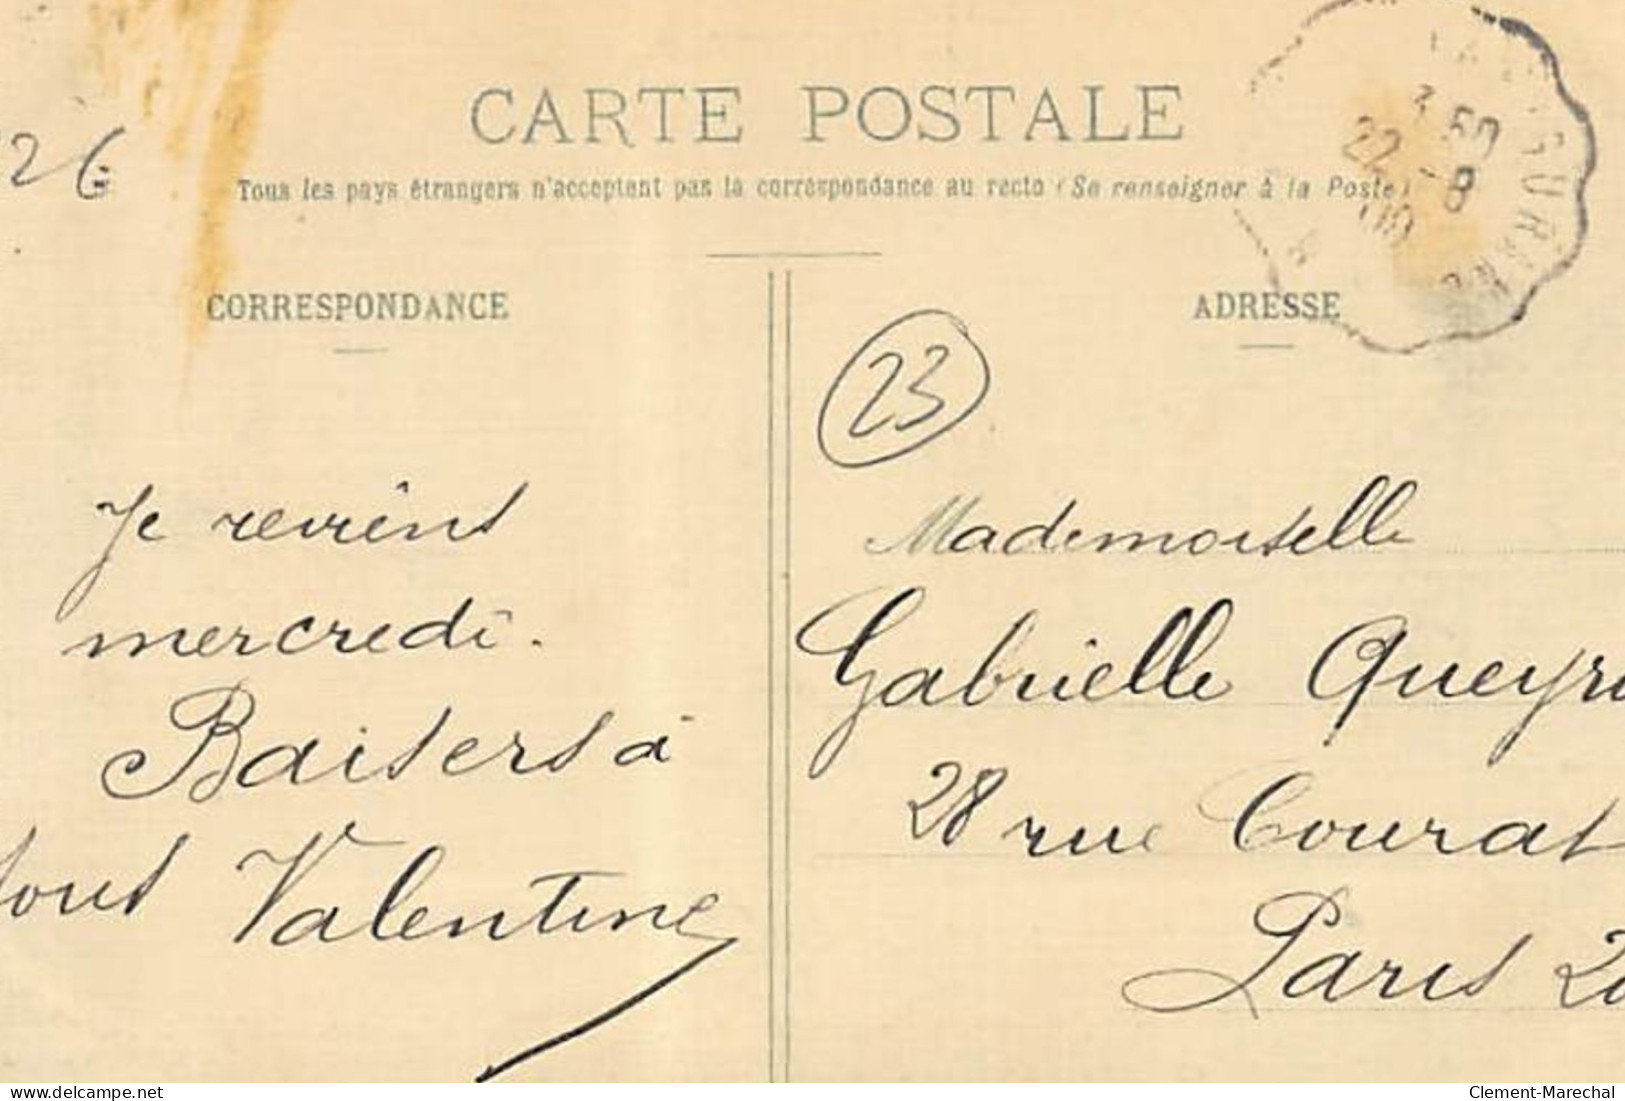 26
CARTE POSTALE
Tous les pays étrangers n'acceptent pas la correspondance au recto (Se renseigner à la Poste)
3 50
22 8
CORRESPONDANCE
ADRESSE
23
Je reviens
mercredi.
Baisers à
tous Valentine
Mademoiselle
Gabrielle Queyr
28 rue Courat
Paris 20
delcampe.net
Clement-Marechal